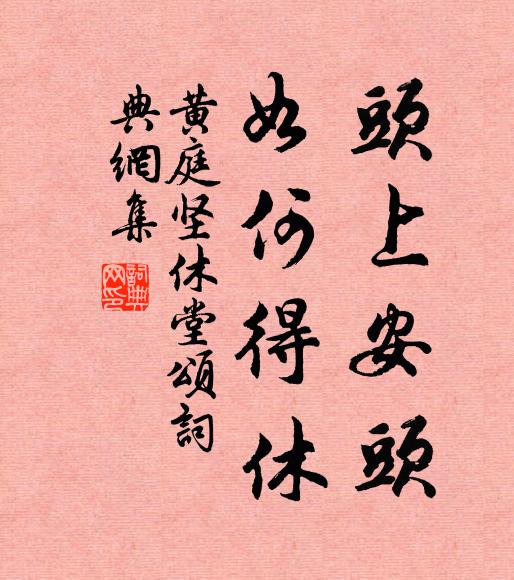 頭上安頭
如何得休
黄庭坚休堂頌詞
典網集
詞典
网印